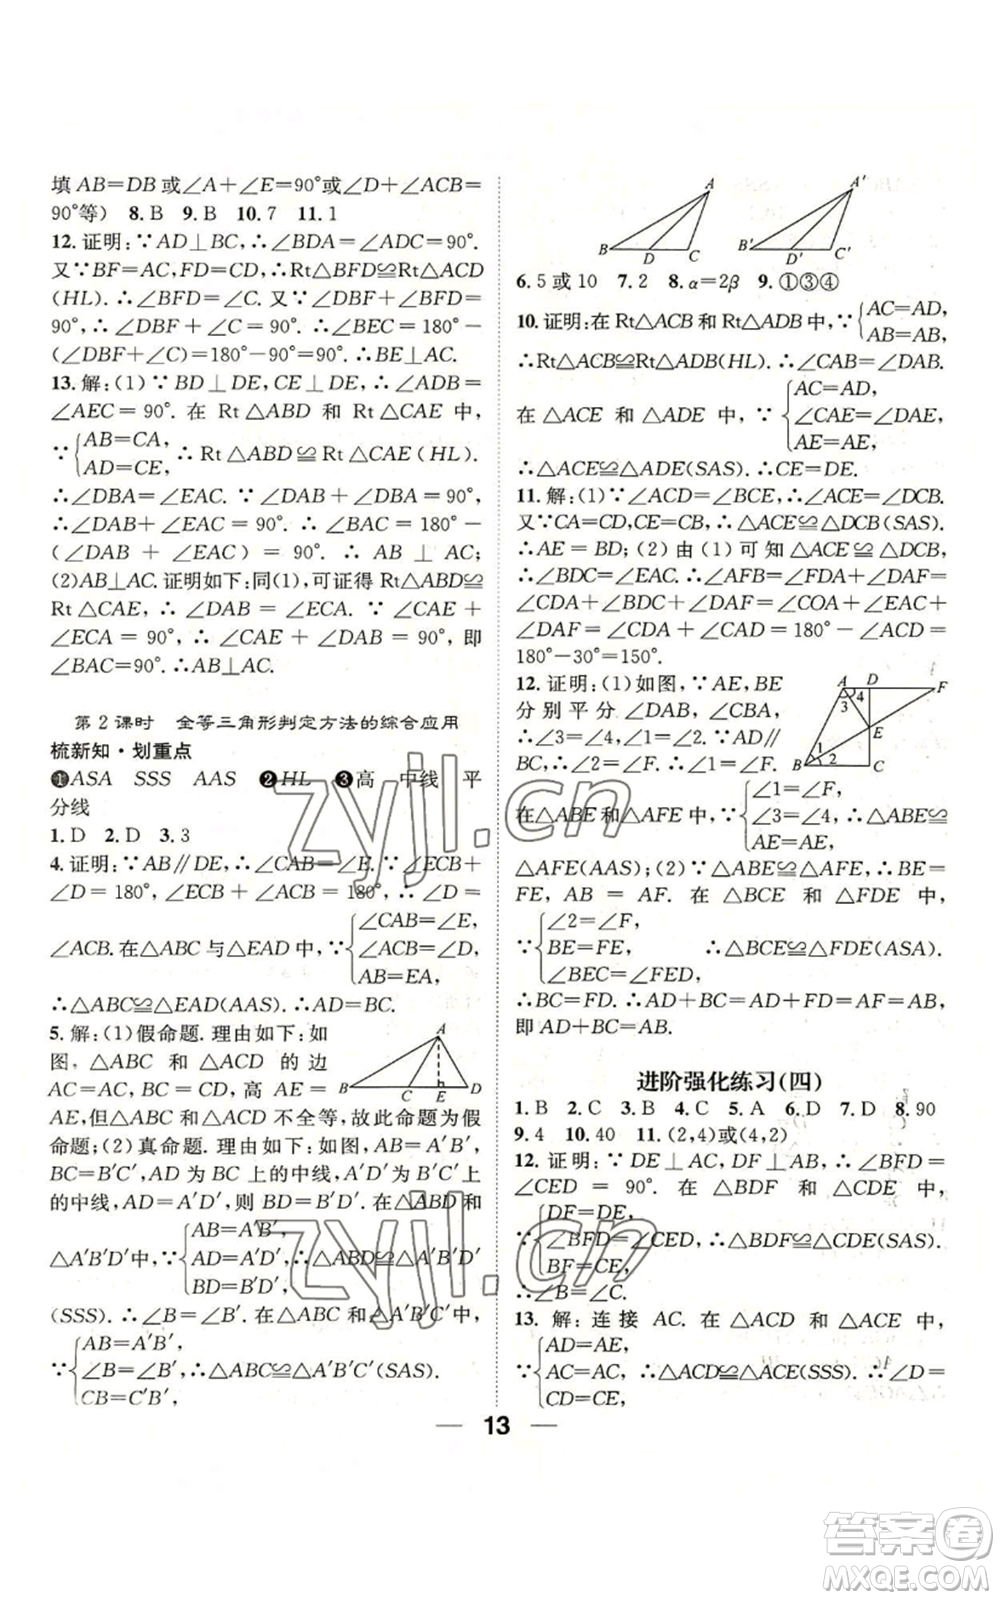 填 AB=DB 或∠A+∠E=90°或∠D+∠ACB=
90°等) 8. B 9. B 10. 7 11. 1
12. 证明:∵AD⊥BC,∴∠BDA=∠ADC=90°.
又∵BF=AC,FD=CD,∴Rt△BDF≌Rt△ACD
(HL).∴∠BFD=∠C. 又∵∠DBF+∠BFD=
90°,∴∠DBF+∠C=90°.∴∠BEC=180°-
(∠DBF+∠C)=180°-90°=90°.∴BE⊥AC.
13. 解:(1)∵BD⊥DE,CE⊥DE,∴∠ADB=
∠AEC=90°. 在 Rt△ABD 和 Rt△CAE 中,
∵{AB=CA,
AD=CE, ∴Rt△ABD≌Rt△CAE(HL).
∴∠DBA=∠EAC. ∵∠DAB+∠DBA=90°,
∴∠DAB+∠EAC=90°.∴∠BAC=180°-
(∠DAB+∠EAC)=90°.∴AB⊥AC;
(2)AB⊥AC. 证明如下:同(1),可证得 Rt△ABD≌
Rt△CAE,∴∠DAB=∠ECA. ∵∠CAE+
∠ECA=90°,∴∠CAE+∠DAB=90°,即
∠BAC=90°.∴AB⊥AC.
第 2 课时 全等三角形判定方法的综合应用
梳新知·划重点
❶ASA SSS AAS ❷HL ❸高 中线 平
分线
1. D 2. D 3. 3
4. 证明:∵AB∥DE,∴∠CAB=∠E.∵∠ECB+
∠D=180°,∠ECB+∠ACB=180°,∴∠D=
∠ACB. 在△ABC 与△EAD 中,∵{∠CAB=∠E,
∠ACB=∠D,
AB=EA,
∴△ABC≌△EAD(AAS).∴AD=BC.
5. 解:(1)假命题. 理由如下:如
图,△ABC 和 △ACD 的边
AC=AC,BC=CD,高 AE=
AE,但△ABC 和△ACD 不全等,故此命题为假
命题;(2)真命题. 理由如下:如图,AB=A′B′,
BC=B′C′,AD 为 BC 上的中线,A′D′为 B′C′上
的中线,AD=A′D′,则 BD=B′D′. 在△ABD 和
△A′B′D′中,∵{AB=A′B′,
AD=A′D′,∴△ABD≌△A′B′D′
BD=B′D′,
(SSS).∴∠B=∠B′. 在△ABC 和△A′B′C′中,
∵{AB=A′B′,
∠B=∠B′,∴△ABC≌△A′B′C′(SAS).
CB=C′B′,
A B C E D
A B D C A′ B′ D′ C′
6. 5 或 10 7. 2 8. α=2β 9. ①③④
10. 证明:在 Rt△ACB 和 Rt△ADB 中,∵{AC=AD,
AB=AB,
∴Rt△ACB≌Rt△ADB(HL).∴∠CAB=∠DAB.
在 △ACE 和 △ADE 中,∵{AC=AD,
∠CAE=∠DAE,
AE=AE,
∴△ACE≌△ADE(SAS).∴CE=DE.
11. 解:(1)∵∠ACD=∠BCE,∴∠ACE=∠DCB.
又∵CA=CD,CE=CB,∴△ACE≌△DCB(SAS).
∴AE=BD;(2)由(1)可知△ACE≌△DCB,
∴∠BDC=∠EAC.∴∠AFB=∠FDA+∠DAF=
∠CDA+∠BDC+∠DAF=∠CDA+∠EAC+
∠DAF=∠CDA+∠CAD=180°-∠ACD=
180°-30°=150°.
12. 证明:(1)如图,∵AE,BE
分别平分∠DAB,∠CBA,
∴∠3=∠4,∠1=∠2. ∵AD∥
BC,∴∠2=∠F. ∴∠1=∠F.
在△ABE 和△AFE 中,∵{∠1=∠F,
∠3=∠4,∴△ABE≌
AE=AE,
△AFE(AAS);(2)∵△ABE≌△AFE,∴BE=
FE,AB=AF. 在△BCE 和△FDE 中,
∵{∠2=∠F,
BE=FE, ∴△BCE≌△FDE(ASA).
∠BEC=∠FED,
∴BC=FD.∴AD+BC=AD+FD=AF=AB,
即 AD+BC=AB.
A D F 3 4 E 1 2 B C
进阶强化练习(四)
1. B 2. C 3. B 4. C 5. A 6. D 7. D 8. 90
9. 4 10. 40 11. (2,4)或(4,2)
12. 证明:∵DE⊥AC,DF⊥AB,∴∠BFD=
∠CED=90°. 在 △BDF 和 △CDE 中,
∵{DF=DE,
∠BFD=∠CED,∴△BDF≌△CDE(SAS).
BF=CE,
∴∠B=∠C.
13. 解:连接 AC. 在 △ACD 和 △ACE 中,
∵{AD=AE,
AC=AC,∴△ACD≌△ACE(SSS).∴∠D=
CD=CE,
13
zyjl.cn
zyjl.cn
答案卷
MXQE.COM